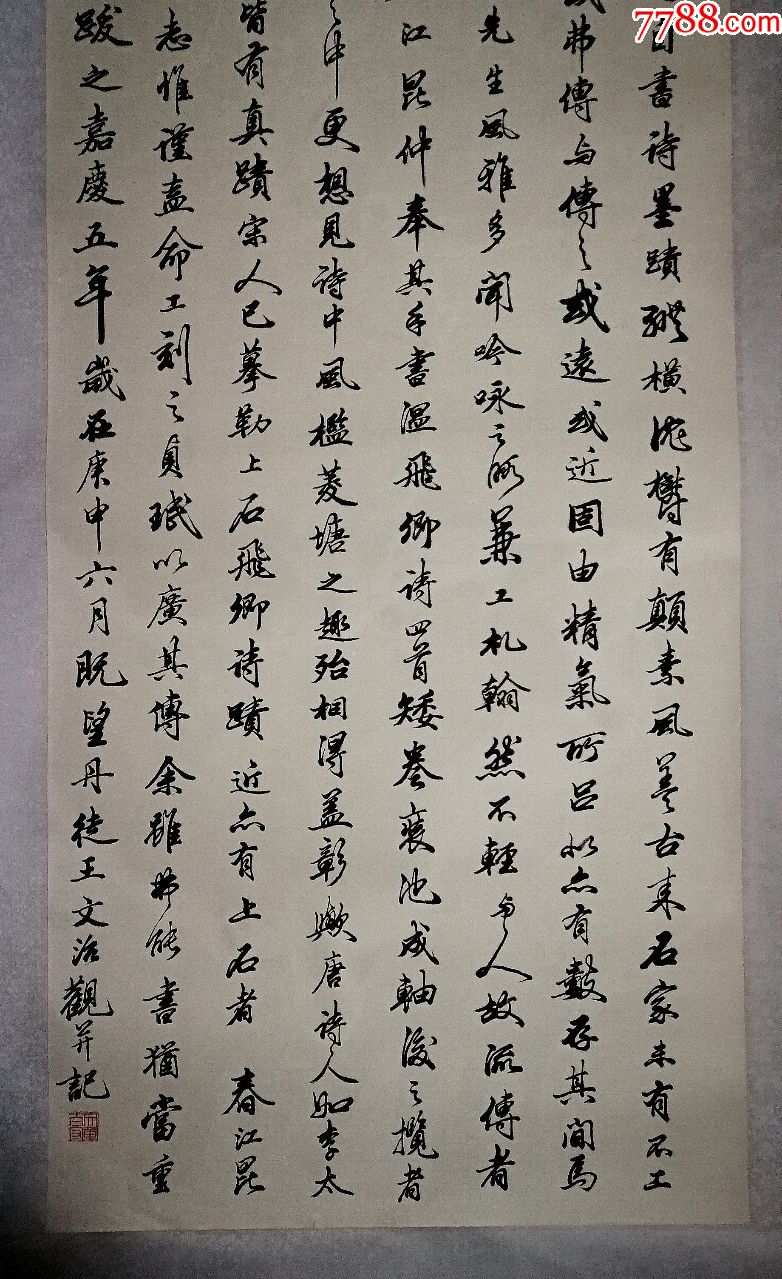 7788.com
自書詩墨蹟縱橫沱鬱有顛素風蓋古来名家未有不工
或弗傳与傳之或遠或近固由精氣所呂必亦有數存其間焉
先生風雅多聞吟咏之所兼工札翰然不輕与人故流傳者
江昆仲奉其手書溫飛卿詩四首矮卷裝池成軸後之攬者
之中更想見詩中風檻菱塘之趣殆相淂蓋彰嫩唐詩人如李太
皆有真蹟宋人已摹勒上石飛卿詩蹟近亦有上石者 春江昆
志惟謹盍命工刻之貞珉以廣其傳余雖弗能書猶當重
跋之嘉慶五年歲在庚申六月既望丹徒王文治觀并記